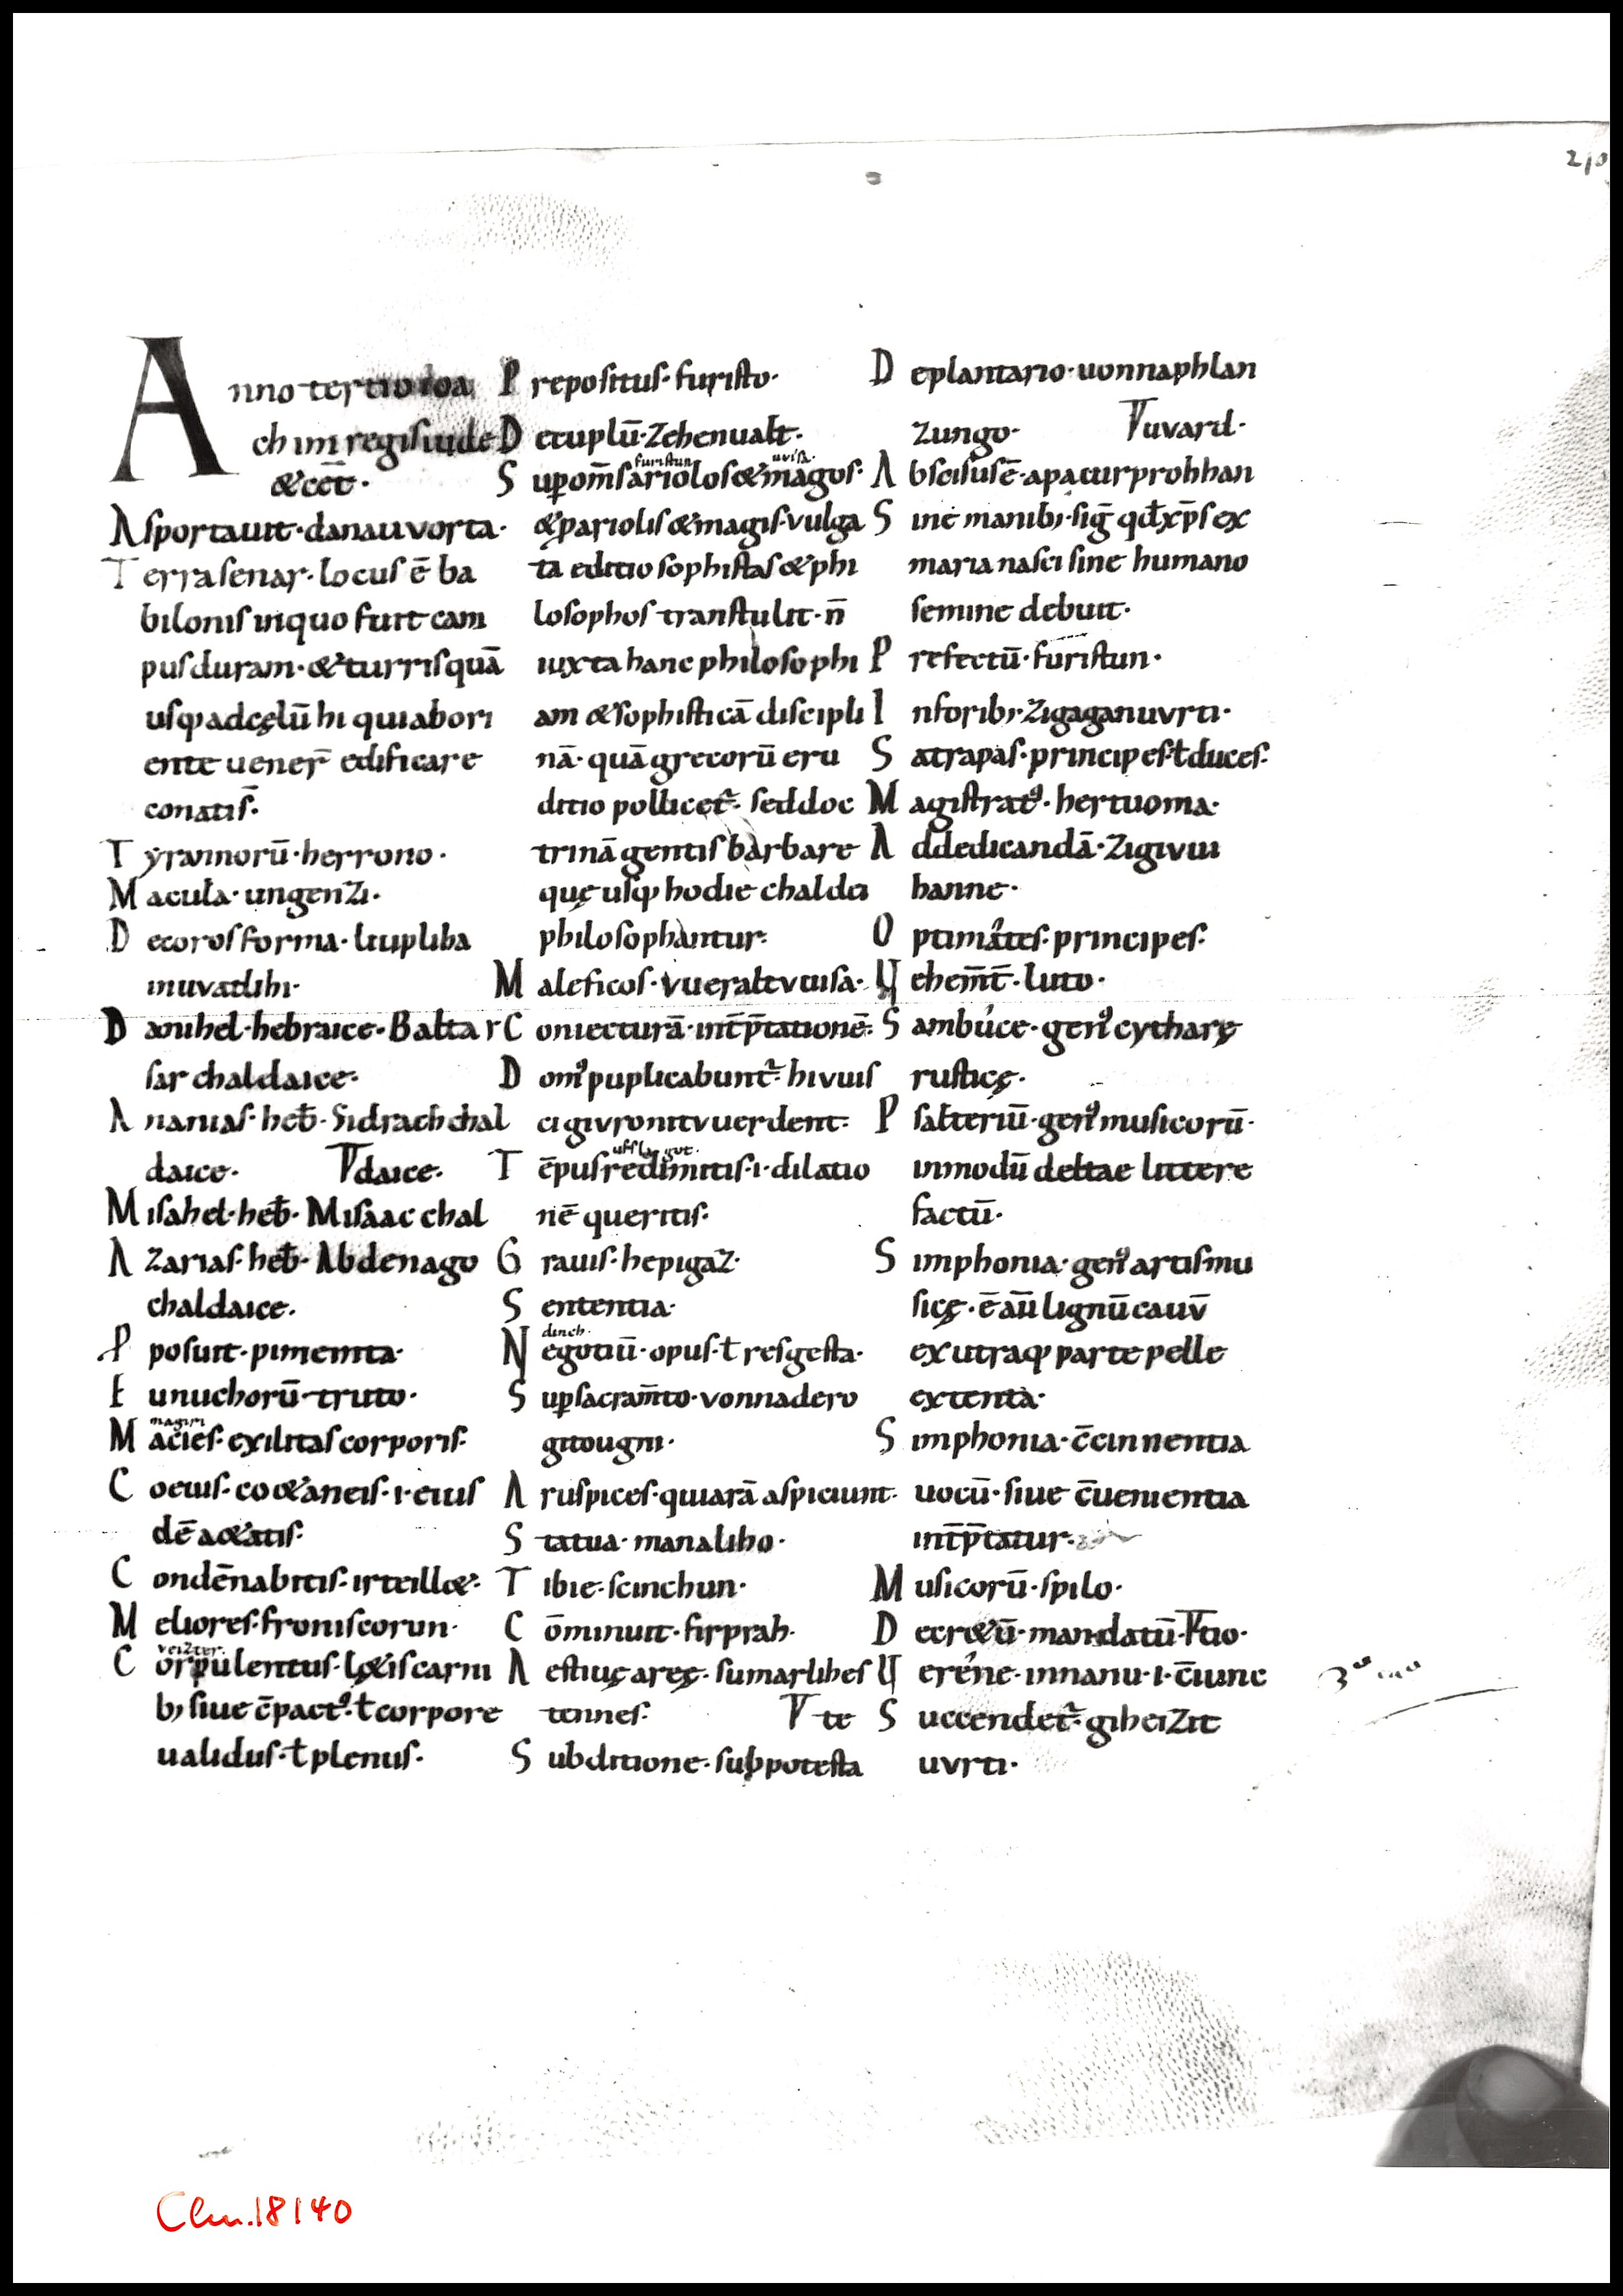 210
Anno tertio ioa
chim regis iude
&cet̄·
Asportauit·danauvorta·
Terra senar·locus ē ba
bilonis inquo fuit cam
pus duram·&turris quā
usq; adcęlū hi quiabori
ente uener̄ edificare
conatis̄·
Tẏrannorū·herrono·
Macula·ungenzi·
Decoros forma·liupliba
inuvadihi·
Danihel·hebraice·Balta
sar chaldaice·
Ananias·heƀ·Sidrach chal
daice· daice·
Misahel·heƀ·Misaac chal
Azarias·heƀ·Abdenago
chaldaice·
Pposuit·pimeinta·
Eunuchorū·truto·
magiri
Macies·exilitas corporis·
Coeuis·co&aneis·i·eius
dē a&atis·
Condēnabitis·irteill&·
Meliores·froniscorun·
veizter·
Corpulentus·l&is carni
b; siue c̄pact᾿·ł corpore
ualidus·ł plenus·
Prepositus·furisto·
Decuplū·Zehenualt·
furistun uuisa·
Sup om̄s ariolos&magos·
&pariolis&magis·vulga
ta editio sophistas&phi
losophos transtulit·n̄
iuxta hanc philosophi
am &sophisticā discipli
nā·quā grecorū eru
ditio pollicet᾿·sed doc
trinā gentis barbare
quę usq; hodie chaldei
philosophantur·
Maleficos·vueraltvuisa·
Coniecturā·int̄p̄tationē·
Dom᾿puplicabunt᾿·hivuis
ci givronitvuerdent·
ufslagot·
Tēpus redimitis·i·dilatio
nē queritis·
Grauis·hepigaz·
Sententia·
dinch·
Negotiū·opus·ł res gesta·
Sup sacram̄to·vonnadero
gitougni·
Aruspices·quiarā aspiciunt·
Statua·manaliho·
Tibie·scinchun·
Cōminuit·firprah·
Aestiuę areę·sumarlihes
tennes· te
Subditione·sub potesta
Deplantario·uonnaphlan
zungo· uvard·
Abscisus ē·apacurprohhan
Sine manib;·sig̅ qđ xp̄s ex
maria nasci sine humano
semine debuit·
Prefectū·furistun·
Inforib;·Zigaganuvrti·
Satrapas·principes·ł duces·
Magistrat᾿·hertuoma·
Addedicandā·Zigivui
hanne·
Optimates·principes·
Vehem̄t̄·luto·
Sambuce·gen᾿cytharę
rusticę·
Psalteriū·gen᾿musicorū·
inmodū deltae littere
factū·
Simphonia·gen᾿artis mu
sicę·ē aū lignū cauv̄
ex utraq; parte pelle
extenta·
Simphonia·c̄cinnentia
uocū·siue c̄uenientia
int̄p̄tatur·
Musicorū·spilo·
Decr&ū·mandatū· tio·
Verene·innanu·i·c̄iunc
Succendet᾿·giheizit
uvrti·
Clm.18140